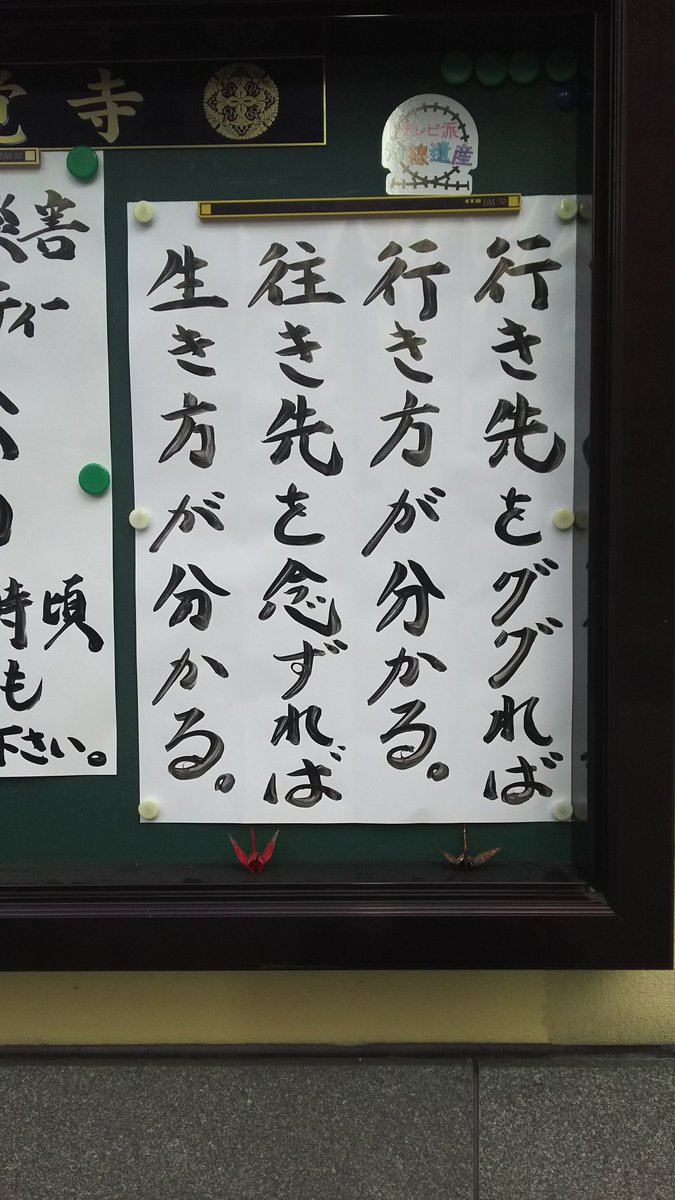 覚寺
テレビ派
線遺産
行き先をググれば
行き方が分かる。
往き先を念ずれば
生き方が分かる。
災害
ティー
時頃
も
下さい。